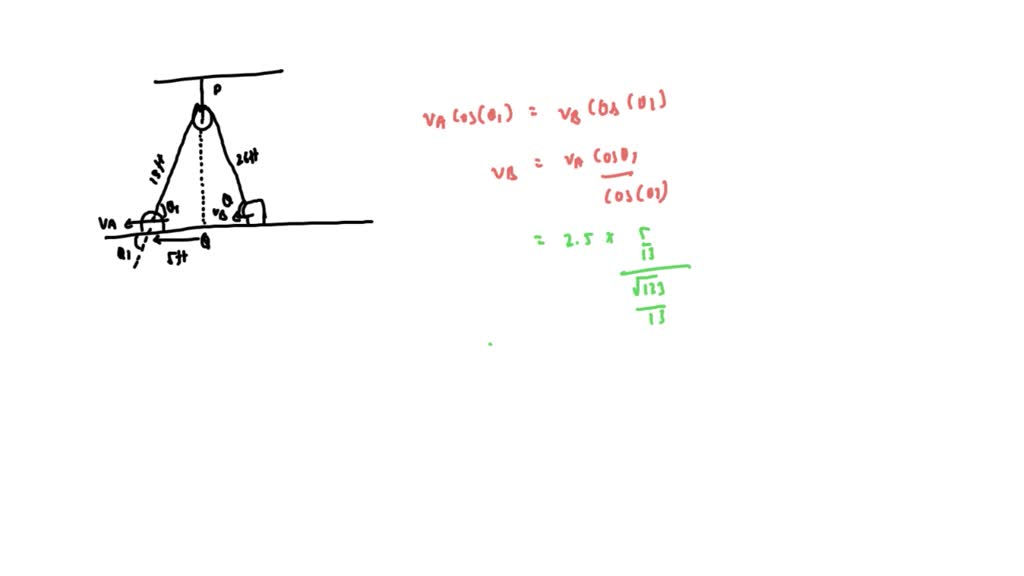 P
13ft
26ft
θ1
θ
VA
VB
θ1
5ft
Q
VA Cos(θ1) = VB Cos(θ1)
VB = VA Cosθ1
Cos(θ2)
= 2.5 × 5
13
√133
13